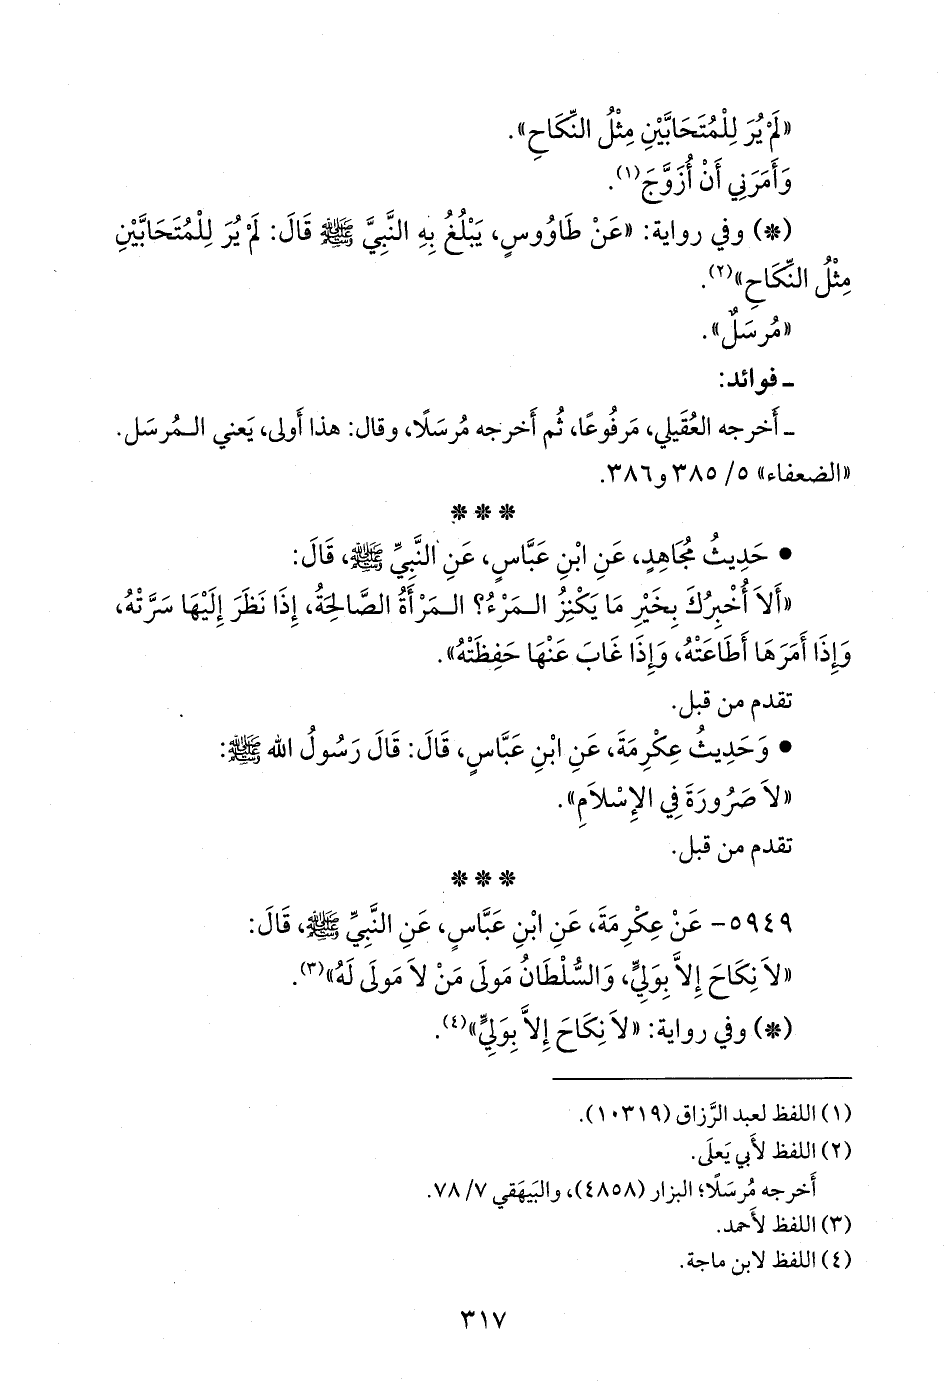 «لَمْ يُرَ لِلْمُتَحَابَّيْنِ مِثْلُ النِّكَاحِ».
وَأَمَرَنِي أَنْ أُزَوَّجَ(١).
(*) وفي رواية: «عَنْ طَاوُوسٍ، يَبْلُغُ بِهِ النَّبِيَّ ﷺ قَالَ: لَمْ يُرَ لِلْمُتَحَابَّيْنِ
مِثْلُ النِّكَاحِ»(٢).
«مُرسَلٌ».
ـ فوائد:
ـ أَخرجه العُقَيلي، مَرفُوعًا، ثُم أَخرجه مُرسَلًا، وقال: هذا أَولى، يَعني الـمُرسَل.
«الضعفاء» ٥/ ٣٨٥ و٣٨٦.
* * *
• حَدِيثُ مُجَاهِدٍ، عَنِ ابْنِ عَبَّاسٍ، عَنِ النَّبِيِّ ﷺ، قَالَ:
«أَلاَ أُخْبِرُكَ بِخَيْرِ مَا يَكْنِزُ الـمَرْءُ؟ الـمَرْأَةُ الصَّالِحَةُ، إِذَا نَظَرَ إِلَيْهَا سَرَّتْهُ،
وَإِذَا أَمَرَهَا أَطَاعَتْهُ، وَإِذَا غَابَ عَنْهَا حَفِظَتْهُ».
تقدم من قبل.
• وَحَدِيثُ عِكْرِمَةَ، عَنِ ابْنِ عَبَّاسٍ، قَالَ: قَالَ رَسُولُ الله ﷺ:
«لاَ صَرُورَةَ فِي الإِسْلاَمِ».
تقدم من قبل.
* * *
٥٩٤٩- عَنْ عِكْرِمَةَ، عَنِ ابْنِ عَبَّاسٍ، عَنِ النَّبِيِّ ﷺ، قَالَ:
«لاَ نِكَاحَ إِلاَّ بِوَلِيٍّ، وَالسُّلْطَانُ مَولَى مَنْ لاَ مَولَى لَهُ»(٣).
(*) وفي رواية: «لاَ نِكَاحَ إِلاَّ بِوَلِيٍّ»(٤).
(١) اللفظ لعبد الرَّزاق (١٠٣١٩).
(٢) اللفظ لأَبي يَعلَى.
أَخرجه مُرسَلًا؛ البزار (٤٨٥٨)، والبَيهَقي ٧/ ٧٨.
(٣) اللفظ لأَحمد.
(٤) اللفظ لابن ماجة.
٣١٧